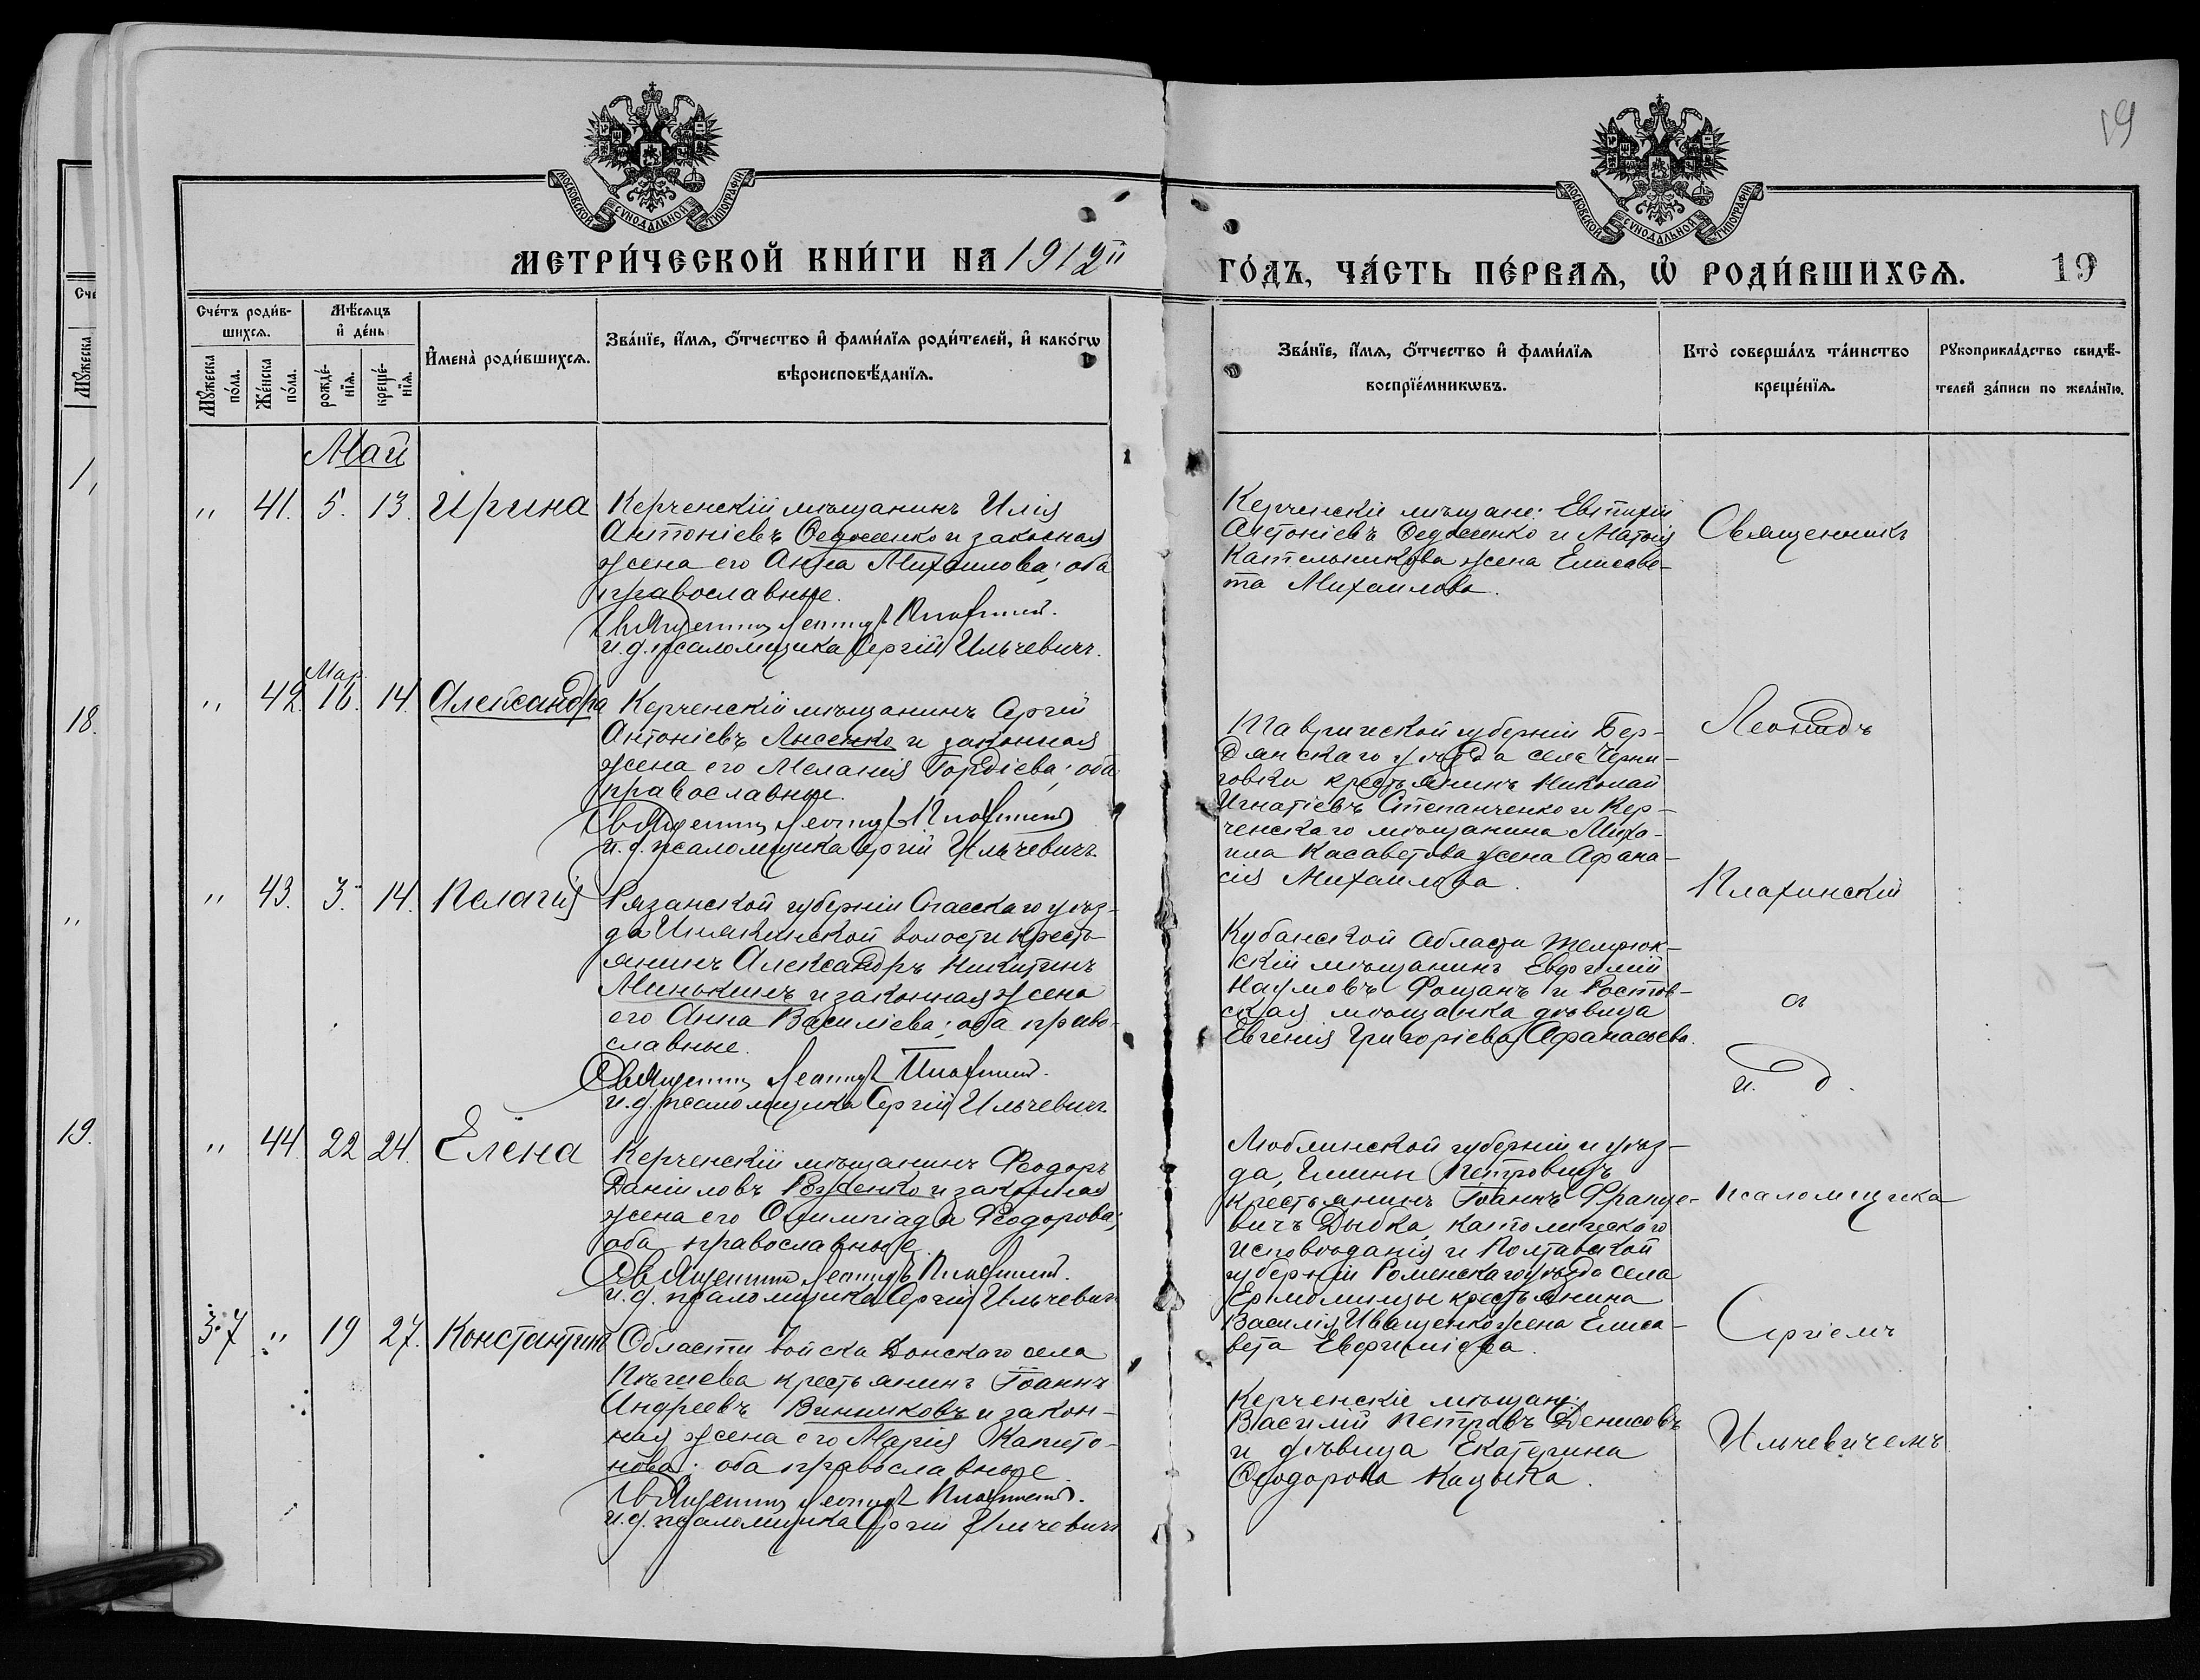 19
МОСКОВСКОЙ СѴНОДАЛЬНОЙ ТИПОГРАФІИ
МОСКОВСКОЙ СѴНОДАЛЬНОЙ ТИПОГРАФІИ
МЕТРИ́ЧЕСКОЙ КНИ́ГИ НА 1912й
ГО́ДЪ, ЧА́СТЬ ПЕ́РВАѦ, Ѡ҆ РОДИ́ВШИХСѦ. 19
Сче́тъ роди́в-
шихсѧ.
Мꙋ́жеска по́ла.
Же́нска по́ла.
Мѣ́сѧцъ
и҆ де́нь
рожде́-нїѧ.
креще́-нїѧ.
И҆мена̀ роди́вшихсѧ.
Зва́нїе, и҆́мѧ, ѻ҆́тчество и҆ фами́лїѧ роди́телей, и҆ како́гѡ
вѣроисповѣ́данїѧ.
Зва́нїе, и҆́мѧ, ѻ҆́тчество и҆ фами́лїѧ
воспрїе́мникѡвъ.
Кто̀ соверша́лъ та́инство
креще́нїѧ.
Рꙋкоприкла́дство свидѣ́-
телей за́писи по жела́нїю.
Май
" 41. 5. 13. Ирина
Керченскій мѣщанинъ Илія
Антоніевъ Ѳедосенко и законная
жена его Анна Михаилова; оба
православные.
Священникъ Леонидъ Плахинскій.
и.д. псаломщика Сергій Ильчевичъ.
Керченскіе мѣщане: Евтихій
Антоніевъ Ѳедосенко и
Котельникова жена Елисаве-
та Михаилова.
Священникъ
" 42. Мар. 16. 14. Александра
Керченскій мѣщанинъ Сергій
Антоніевъ Лысенко и законная
жена его Меланія Гордіева; оба
православные.
Священникъ Леонидъ Плахинскій
и.д. псаломщика Сергій Ильчевичъ.
Таврической губерніи Бер-
дянскаго уѣзда села Черни-
говки крестьянинъ Николай
Игнатіевъ Степанченко и Кер-
ченскаго мѣщанина Миха-
ила Касаветова жена Афана-
сія Михаилова.
Леонидъ
" 43. 3. 14. Пелагія
Рязанской губерніи Спасскаго уѣз-
да Ижевской волости кресть-
янинъ Александръ Никитинъ
Минькинъ и законная жена
его Анна Василіева; оба право-
славные.
Священникъ Леонидъ Плахинскій.
и.д. псаломщика Сергій Ильчевичъ
Плахинскій
Кубанской области Темрюк-
скій мѣщанинъ Евдокимій
Наумовъ Фощанъ и Ростов-
ская мѣщанка дѣвица
Евгенія Григоріева Афанасьева.
съ
и. д.
" 44. 22 24. Елена
Керченскій мѣщанинъ Ѳеодоръ
Даніиловъ Руденко и законная
жена его Олимпіада Ѳеодорова;
оба православные.
Священникъ Леонидъ Плахинскій.
и.д. псаломщика Сергій Ильчевичъ
Люблинской губерніи и уѣз-
да, гмины Петровицъ
крестьянинъ Іоаннъ Франце-
вичъ Дыбка, католическаго
исповѣданія и Полтавской
губерніи Роменскаго уѣзда села
крестьянина
Василія Иващенко жена Елиса-
вета Евфиміева.
псаломщика
37 " 19 27. Константинъ
Области войска Донскаго села
крестьянинъ Іоаннъ
Андреевъ Винниковъ и закон-
ная жена его Марія Капито-
нова; оба православные.
Священникъ Леонидъ Плахинскій.
и.д. псаломщика Сергій Ильчевичъ
Сергіемъ
Керченскіе мѣщане:
Василій Петровъ Денисовъ
и дѣвица Екатерина
Ѳеодорова Кацыка.
Ильчевичемъ
Мꙋ́жеска
18.
"
19.